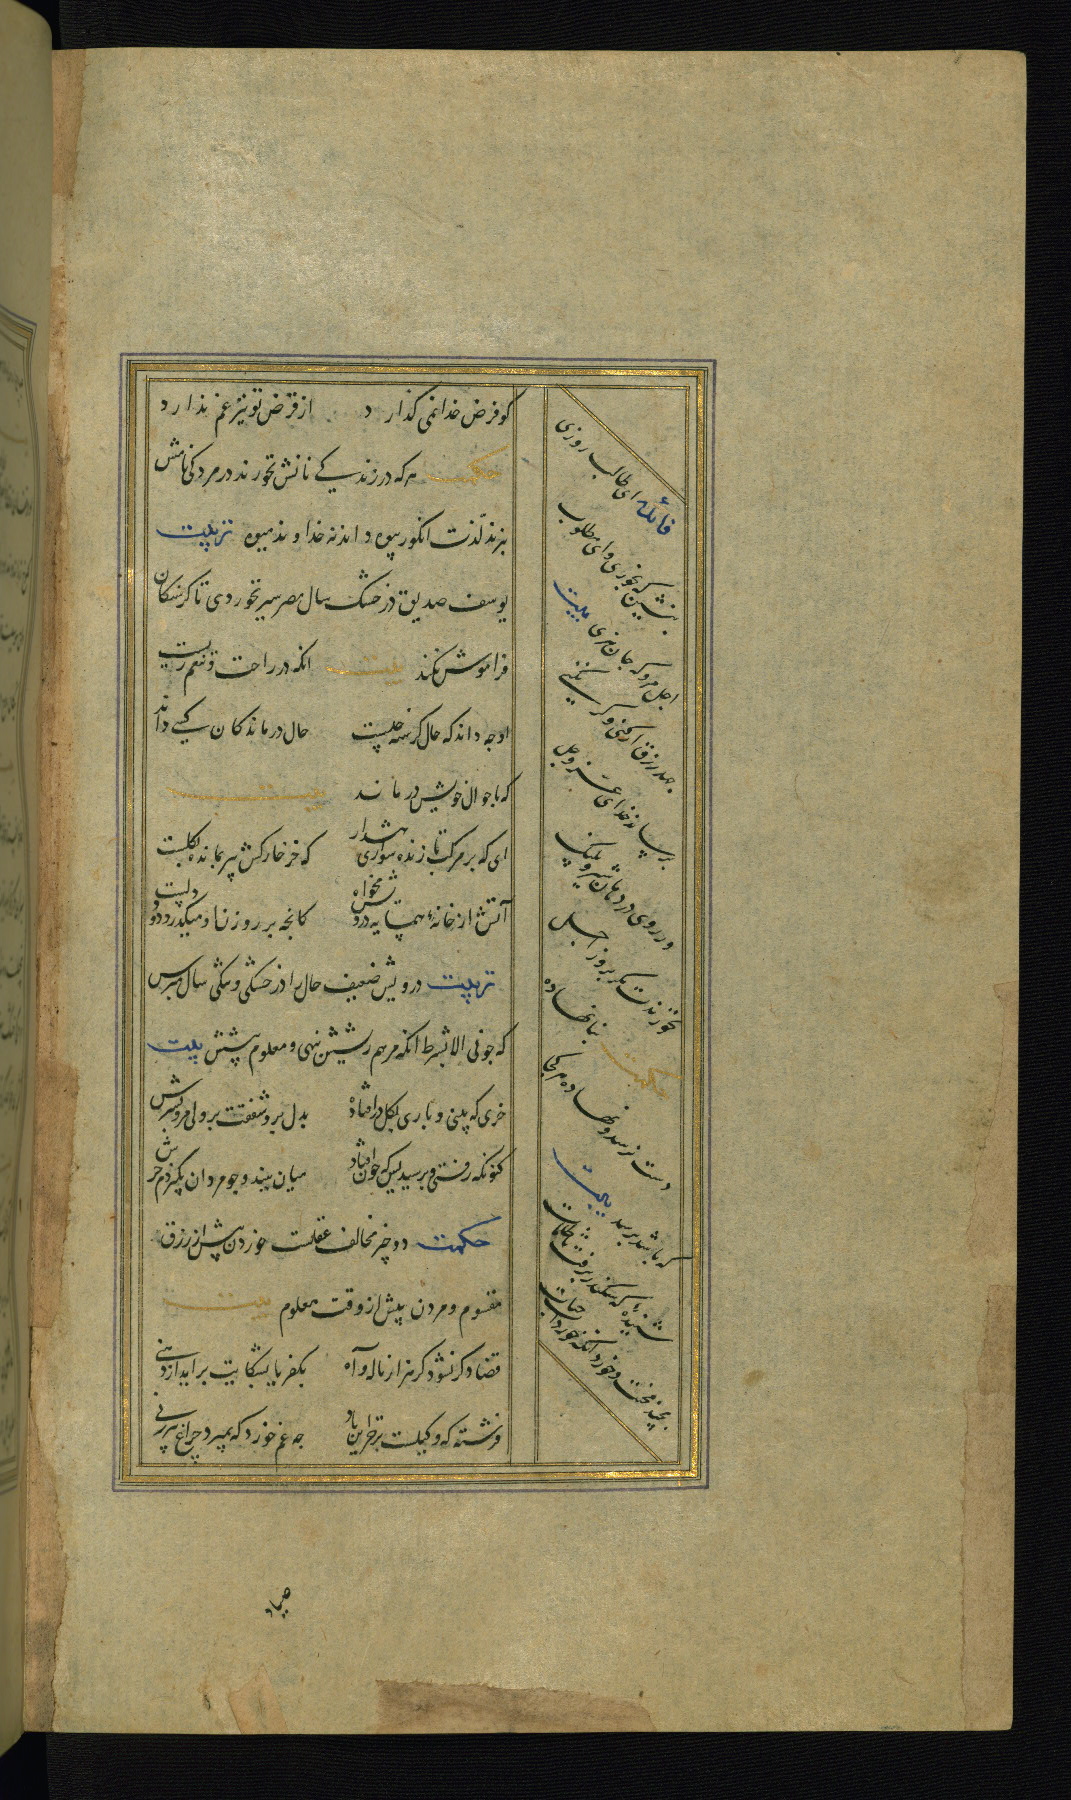 کو فرض خدا نمی گذارد از قرض تو نیز غم ندارد
حکمت هر که در زندگی نانش نخورند در مرد کی نامش
برند لذت انکور بیوه داند نه خداوند میوه تربیت
یوسف صدیق در خشک سال مصر سیر نخوردی تا کرسنکان
فراموش نکند بیت انکه در راحت و تنعم زیست
او چه داند که حال کرسنه چیست حال درماندکان کسی داند
که باحوال خویش درماند بیت
ای که بر مرکب تازنده سواری هشدار که خر خارکش پیر بمانده بکلست
آتش از خانه همسایه درویش مخواه کانچه بر روزن او میکذرد دود دلست
تربیت درویش ضعیف حال را در خشکی و تنکی سال مپرس
که چونی الا بشرط انکه مرهم ریشش نهی و معلوم پیشش بیت
خری که بینی و باری بکل درافتاده بدل برو شفقت بر ولی مرو بسرش
کنونکه رفتی و پرسیدیش که چون افتاد میان ببند و چو مردان بکیر دم خرش
حکمت دو چیز مخالف عقلست خوردن بیش از رزق
مقسوم و مردن پیش از وقت معلوم بیت
قضا دکر نشود کر هزار ناله و آه بکفر یا بشکایت براید از دهنی
فرشته که وکیلست بر خزاین باد چه غم خورد که بمیرد چراغ پیرزنی
فائده ای طالب روزی
بنشین که بخوری و ای مطلوب
اجل مرو که جان نبری بیت
جهد رزق ار کنی و کر نکنی
برساند خدای عز و جل
ور روی در دهان شیر و پلنک
نخورندت مکر بروز اجل
حکمت بنانهاده
دست نرسد و نهاده هر کجا
که باشد برسد بیت
شنیده که سکندر برفت تا ظلمات
بچند محنت و خورد انکه خورد آب حیات
صیاد